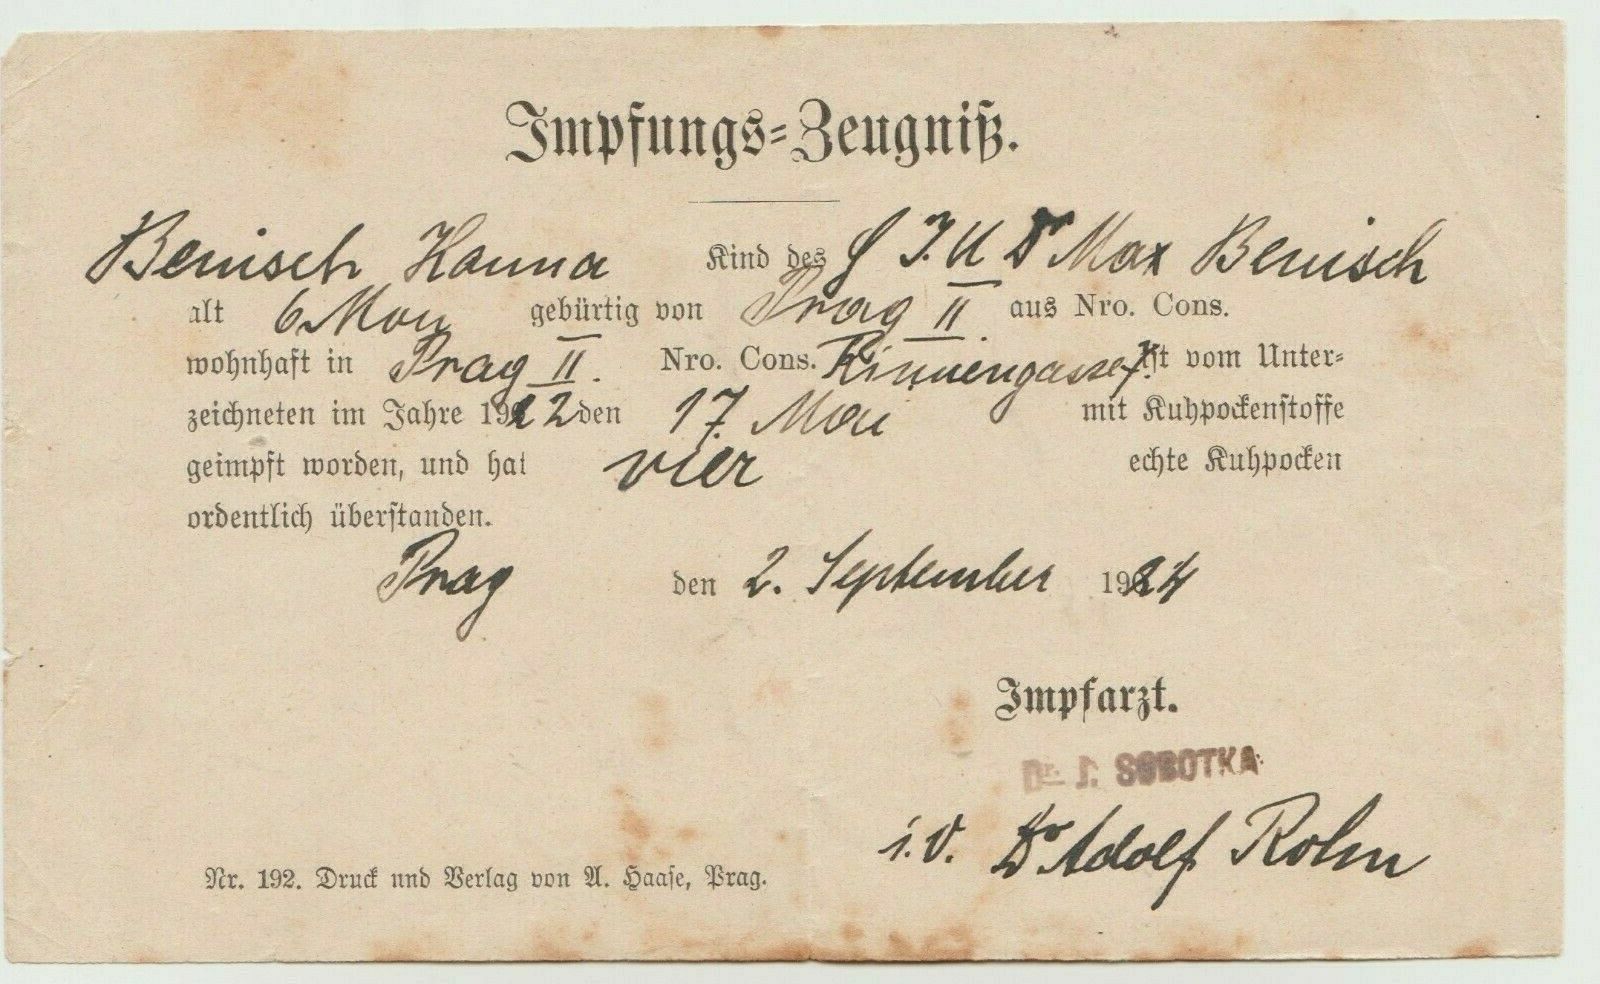 Impfungs-Zeugniß.
Benisch Hanna Kind des H J. U Dr Max Benisch
alt 6 Mon gebürtig von Prag II aus Nro. Cons.
wohnhaft in Prag II. Nro. Cons. ist vom Unter-
zeichneten im Jahre 1922 den 17. Mai mit Kuhpockenstoffe
geimpft worden, und hat vier echte Kuhpocken
ordentlich überstanden.
Prag den 2. September 1924
Impfarzt.
Dr. J. SOBOTKA
i. V. Dr Adolf Rohn
Nr. 192. Druck und Verlag von A. Haase, Prag.